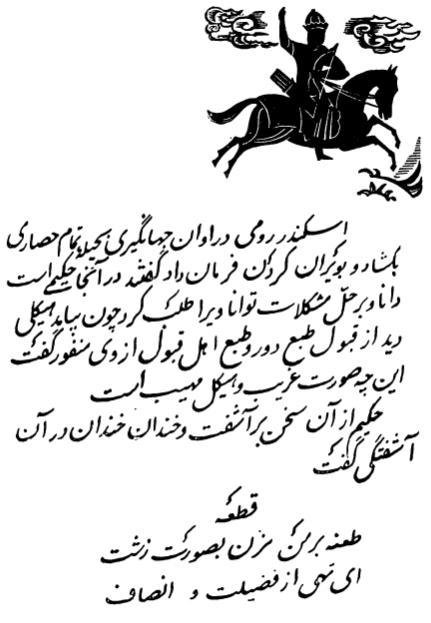 اسکندر رومی در اوان جهانگیری بحیله تمام حصاری
بگشاد و بویران کردن فرمان داد گفتند در آنجا حکیمی است
دانا و بر حل مشکلات توانا ویرا طلب کرد چون بیامد هیکلی
دید از قبول طبع دور و طبع اهل قبول از وی منفور گفت
این چه صورت غریب و هیکل مهیب است
حکیم از آن سخن بر آشفت و خندان خندان در آن
آشفتگی گفت
قطعه
طعنه بر من مزن بصورت زشت
ای تهی از فضیلت و انصاف